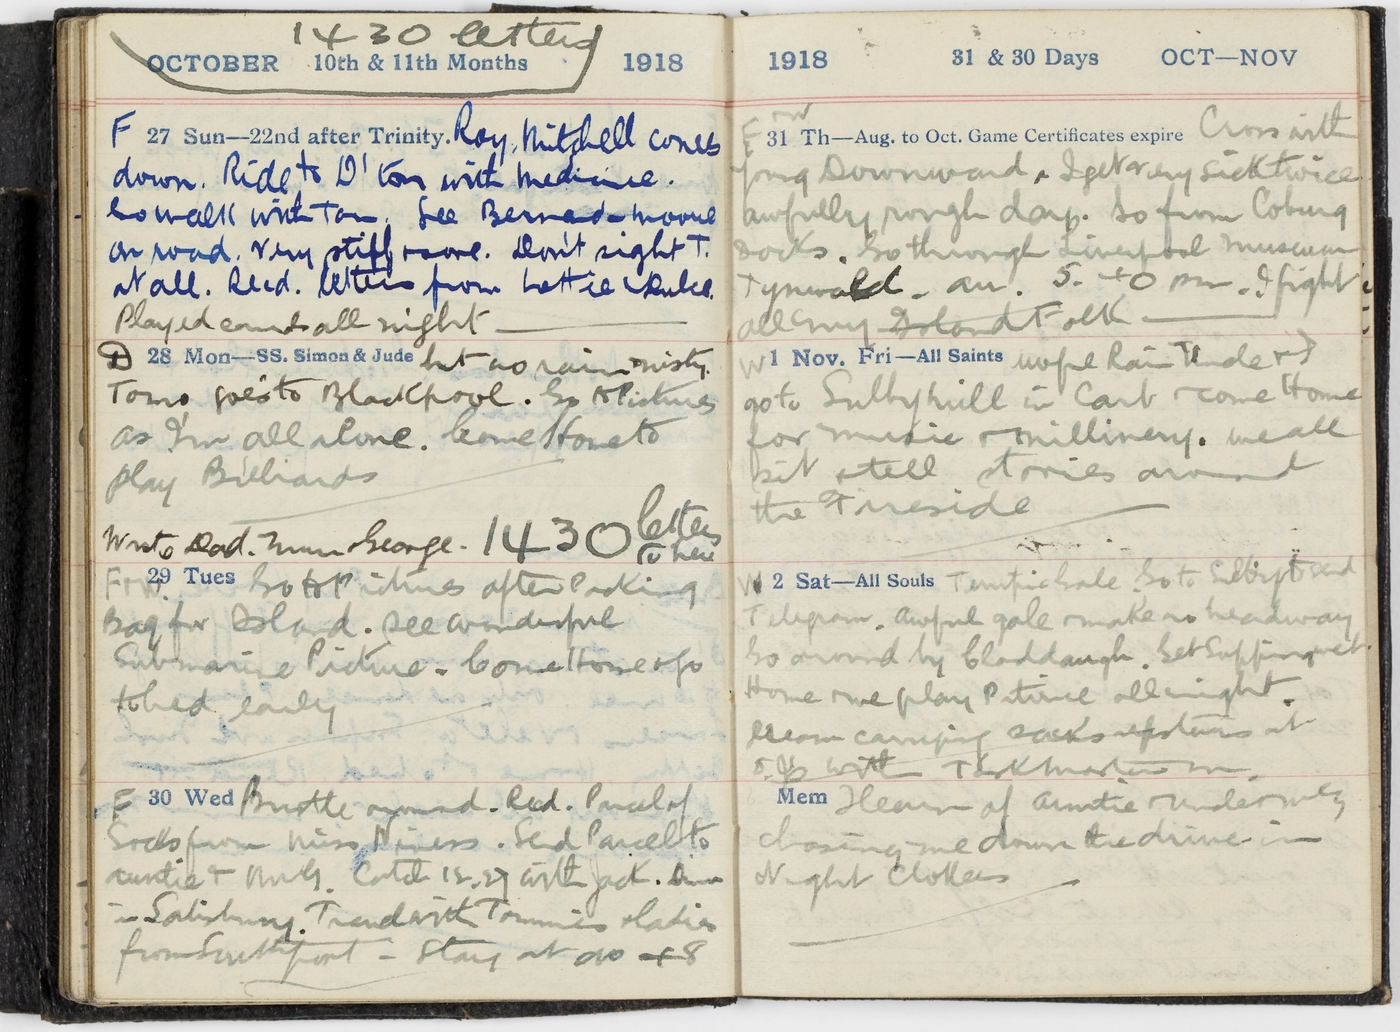 1430 letters
OCTOBER 10th & 11th Months 1918
F 27 Sun—22nd after Trinity. Roy Mitchell comes
down. Ride to D'ton with medicine.
Go walk with Tom. See Bernard Moore
on road. Very stiff & sore. Don't sight T.
at all. Recd. letters from Lottie &
Played cards all night
D 28 Mon—SS. Simon & Jude but no rain misty
Toms goes to Blackpool. Go to Pictures
as I'm all alone. Come Home to
play Billiards
Write Dad. Mum & George. 1430 letters
to here
F 29 Tues Go to Pictures after Packing
Bag for Island. See wonderful
Submarine Picture. Come Home & go
to bed early
F 30 Wed Bustle around. Recd. Parcel of
Socks from Miss . Send Parcel to
auntie & . Catch 12.27 with Jack. Dine
in Salisbury. Travel with Tommies & ladies
from Southport - Stay at no 48
1918 31 & 30 Days OCT—NOV
31 Th—Aug. to Oct. Game Certificates expire Cross with
Downward. I get very sick twice
awfully rough day. Go from Coburg
docks. Go through Liverpool museum
Tynwald. arr. 5.40 pm. I fight
all my Island Folk
W 1 Nov. Fri—All Saints awful Rain &
go to Sulbyhill in Cart & come Home
for music & millinery. We all
sit & tell stories around
the Fireside
W 2 Sat—All Souls Terrific Gale. Go to Sulby to send
Telegram. Awful gale & make no headway
Go around by Claddaugh. Get Sopping wet.
Home & we play Patience all night.
Dream carrying sacks upstairs at
with
Mem Hear of auntie &
chasing me down the drive in
Night Clothes